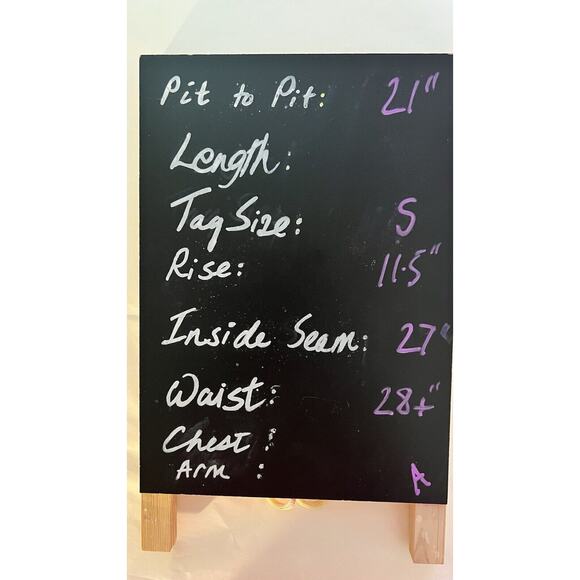 Pit to Pit: 21"
Length:
Tag Size: S
Rise: 11.5"
Inside Seam: 27"
Waist: 28+"
Chest:
Arm :
A